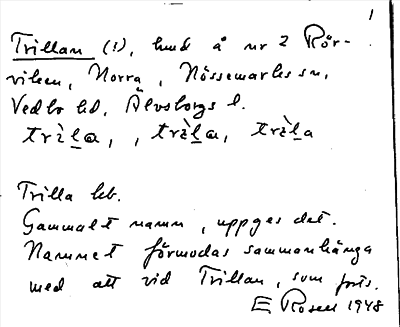 1
Trillan (!), hmd å nr 2 Rör-
viken, Norra, Nössemarks sn,
Vedbo hd, Älvsborgs l.
trìla, , trìla, trìla
Trilla bb.
Gammalt namn, uppges det.
Namnet förmodas sammanhänga
med att vid Trillan, som förts.
E Rosell 1948